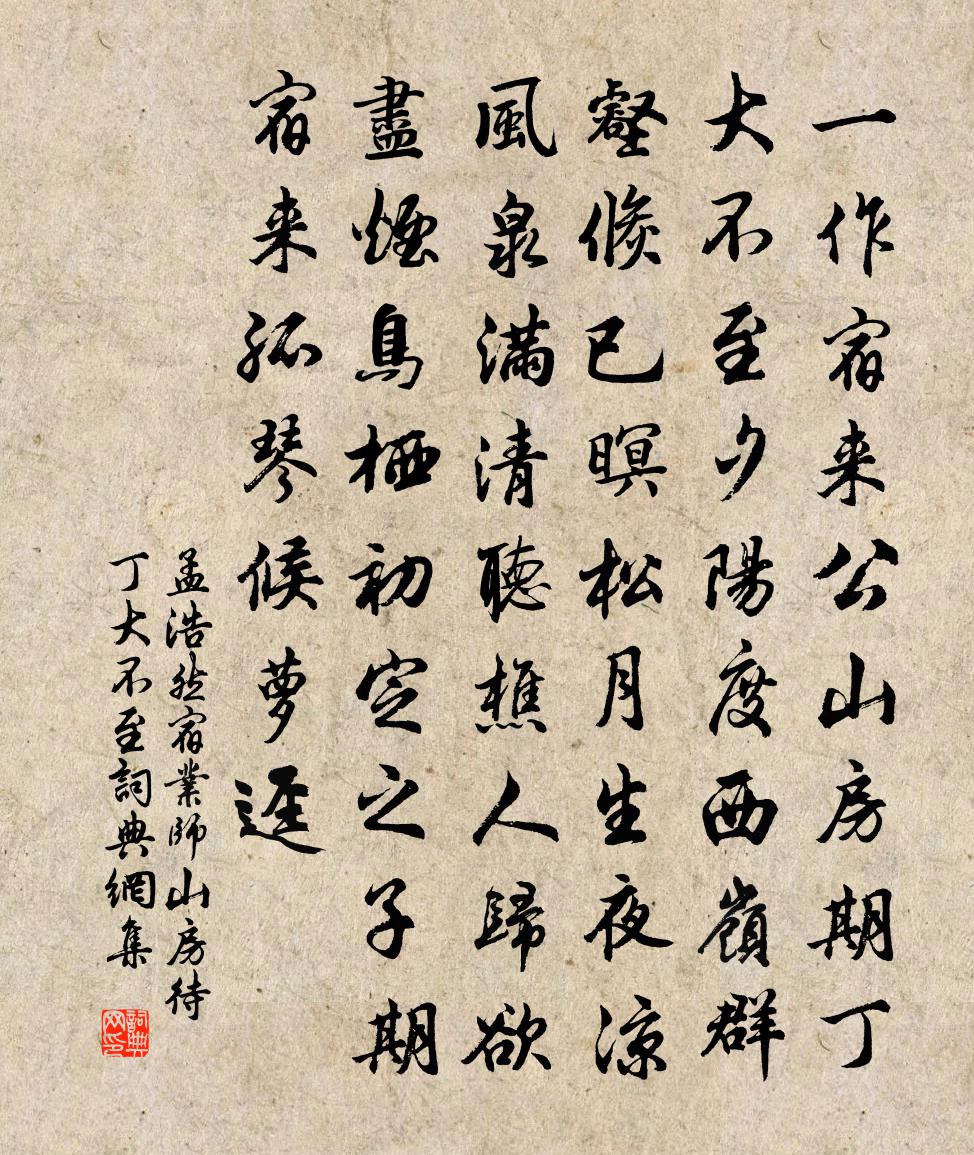 一作宿来公山房期丁
大不至夕陽度西嶺群
壑倐已暝松月生夜涼
風泉滿清聽樵人歸欲
盡煙鳥栖初定之子期
宿来孤琴候萝逕
孟浩然宿業師山房待
丁大不至詞典網集
詞典网印